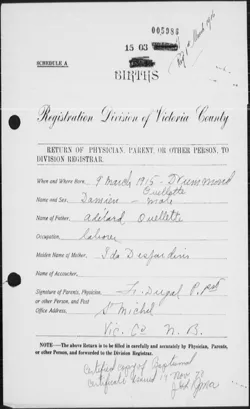 005986
15 03
SCHEDULE A
BIRTHS
Registration Division of Victoria County
RETURN OF PHYSICIAN, PARENT, OR OTHER PERSON, TO
DIVISION REGISTRAR.
When and Where Born, 9 March 1915 - Drummond
Ouellette
Name and Sex, Damien - male
Name of Father, Adelard Ouellette
Occupation, laborer
Maiden Name of Mother, Ida Desjardins
Name of Accoucher,
Signature of Parents, Physician, F. Dugal P. Pst
or other Person, and Post
Office Address, St Michel
Vic. Co N. B.
NOTE.—The above Return is to be filled in carefully and accurately by Physician, Parents,
or other Person, and forwarded to the Division Registrar.
Certified copy of Baptismal
Certificate issued 17 Nov